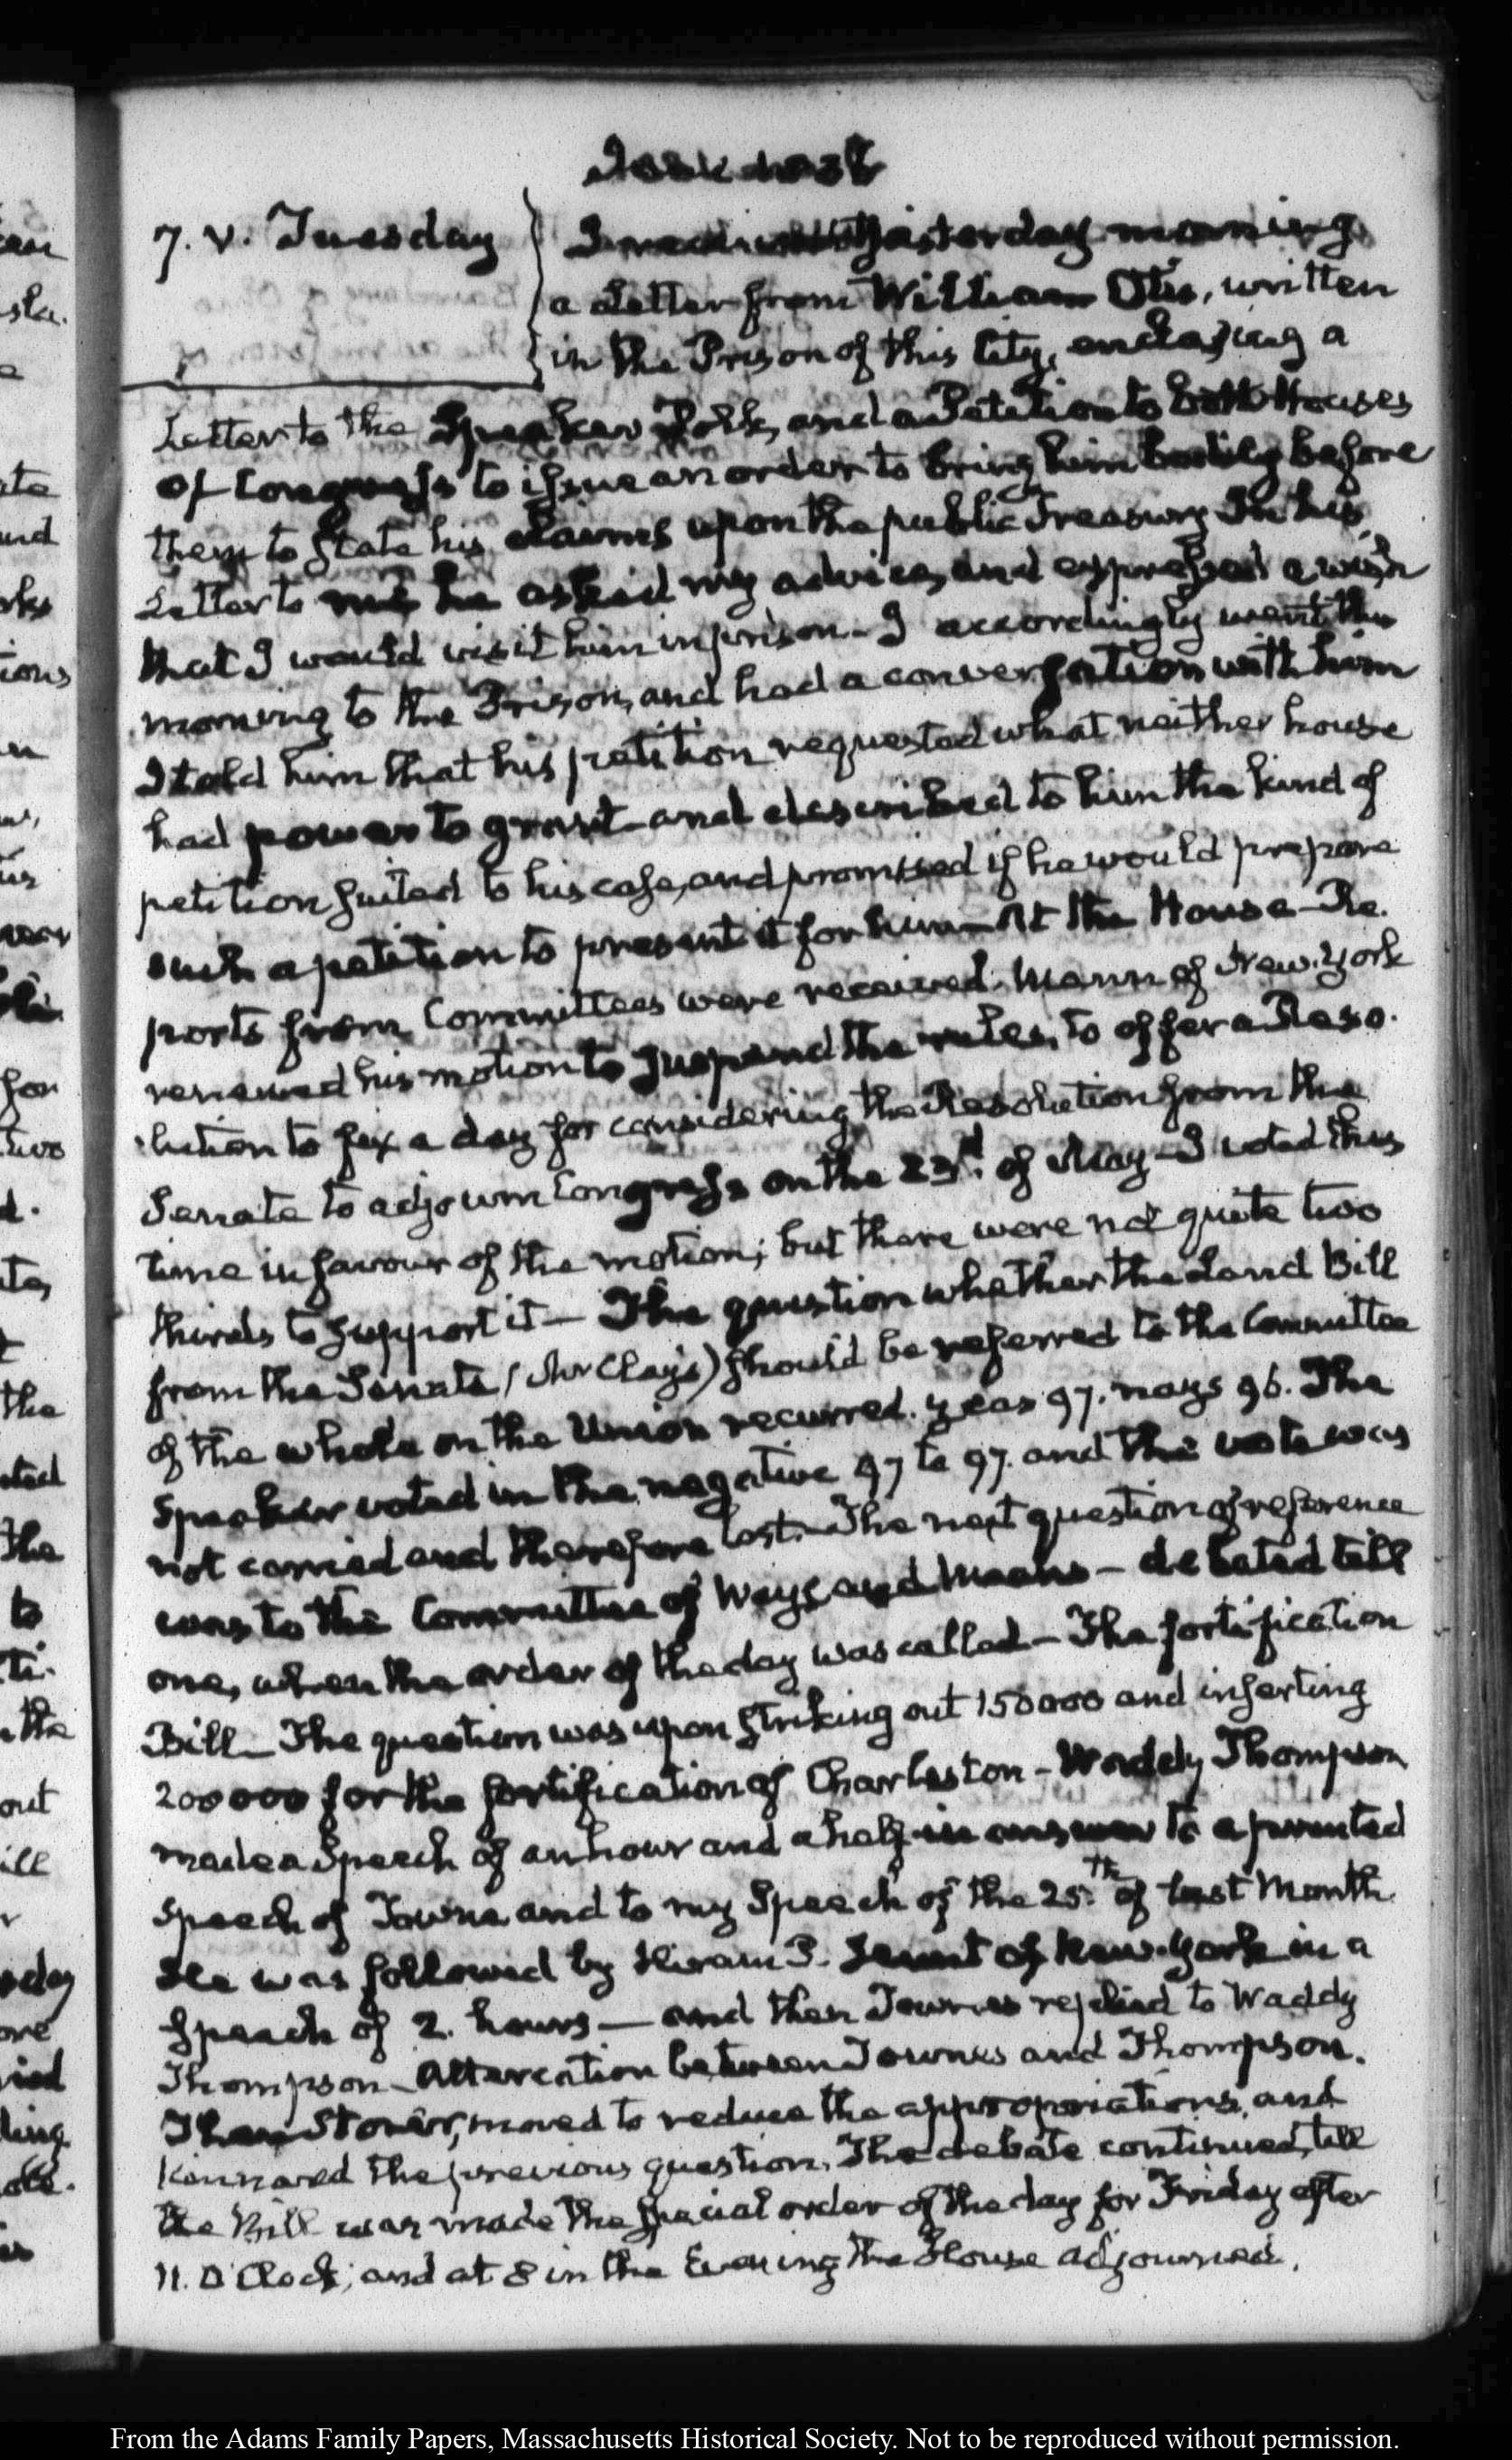 7. V. Tuesday
I received yesterday morning
a Letter from William Otis, written
in the Prison of this City, enclosing a
Letter to the Speaker Polk, and a Petition to both Houses
of Congress to issue an order to bring him bodily before
them to state his claims upon the public Treasury In his
Letter to me he asked my advice, and expressed a wish
that I would visit him in prison- I accordingly went this
morning to the Prison, and had a conversation with him
I told him that his petition requested what neither house
had power to grant- and described to him the kind of
petition suited to his case, and promised if he would prepare
such a petition to present it for him- At the House- Re-
ports from Committees were received. Mann of New-York
renewed his motion to suspend the rules, to offer a Reso-
lution to fix a day for considering the Resolution from the
Senate to adjourn Congress on the 23d. of May- I voted this
time in favour of the motion; but there were not quite two
thirds to support it- The question whether the Land Bill
from the Senate, (Mr Clay's) should be referred to the Committee
of the whole on the Union recurred. yeas 97. nays 96. The
Speaker voted in the negative 97 to 97. and the vote was
not carried and therefore lost. The next question of reference
was to the Committee of Ways and Means- debated till
one, when the order of the day was called- The fortification
Bill- The question was upon striking out 150000 and inserting
200000 for the fortification of Charleston- Waddy Thompson
made a Speech of an hour and a half in answer to a printed
speech of Towns and to my Speech of the 25th. of last Month
He was followed by Hiram P. Hunt of New-York in a
Speech of 2. hours- and then Townes replied to Waddy
Thompson- Altercation between Townes and Thompson.
Then Storer, moved to reduce the appropriations, and
Kinnard the previous question. The debate continued, till
the Bill was made the special order of the day for Friday after
11. O'Clock; and at 8 in the Evening the House adjourned.
From the Adams Family Papers, Massachusetts Historical Society. Not to be reproduced without permission.